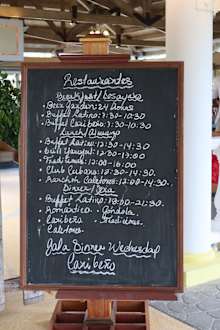 Restaurantes
Breakfast/Desayuno
• Beer Garden: 24 horas
• Buffet Latino: 7:30-10:30
• Buffet Caribeño: 7:30-10:30
Lunch/Almuerzo
• Buffet Latino: 12:30-14:30
• 12:30-17:00
• 12:00-16:00
Club Cubano: 12:30-14:30
• Ranchón Caletones: 12:00-14:30
Dinner/Cena
• Buffet Latino: 18:00-21:30
• Romantico • Gondola
• Caribeño
Gala Dinner Wednesday
Caribeño